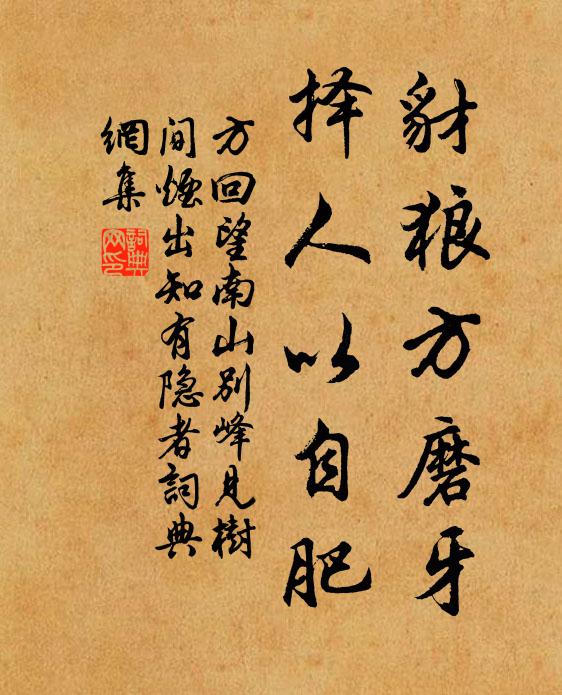 豺狼方磨牙
择人以自肥
方回望南山别峰見樹
间煙出知有隐者詞典
網集
詞典網印